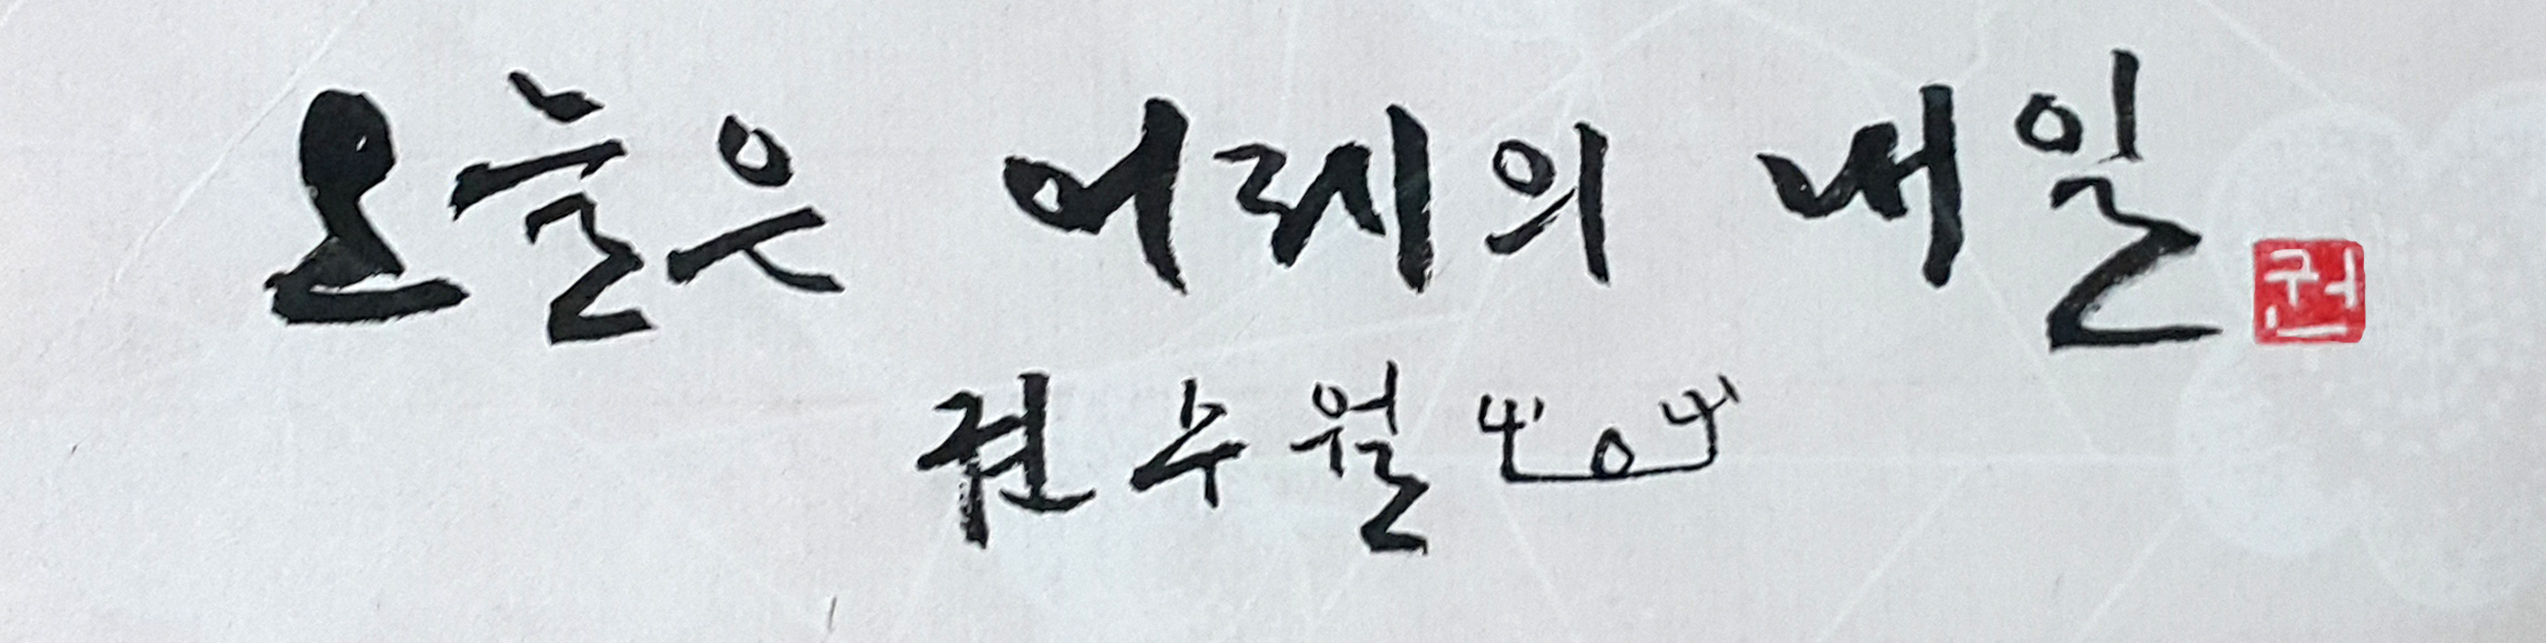 오늘은 어제의 내일
권
권수월